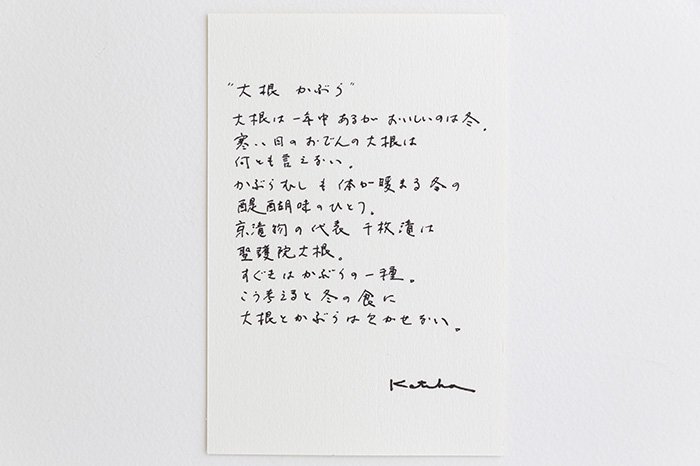 "大根 かぶら"
大根は一年中 あるが おいしいのは冬.
寒い日の おでんの 大根は
何とも言えない。
かぶらむし も 体が暖まる 冬の
醍醐味のひとつ。
京漬物の代表 千枚漬は
聖護院大根。
すぐきはかぶらの一種。
こう考えると 冬の食に
大根とかぶらは欠かせない。